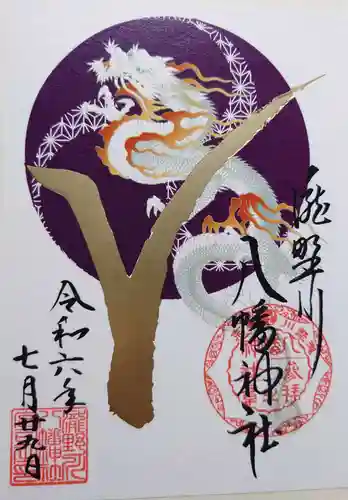 瀧野川
八幡神社
令和六年
七月廿九日